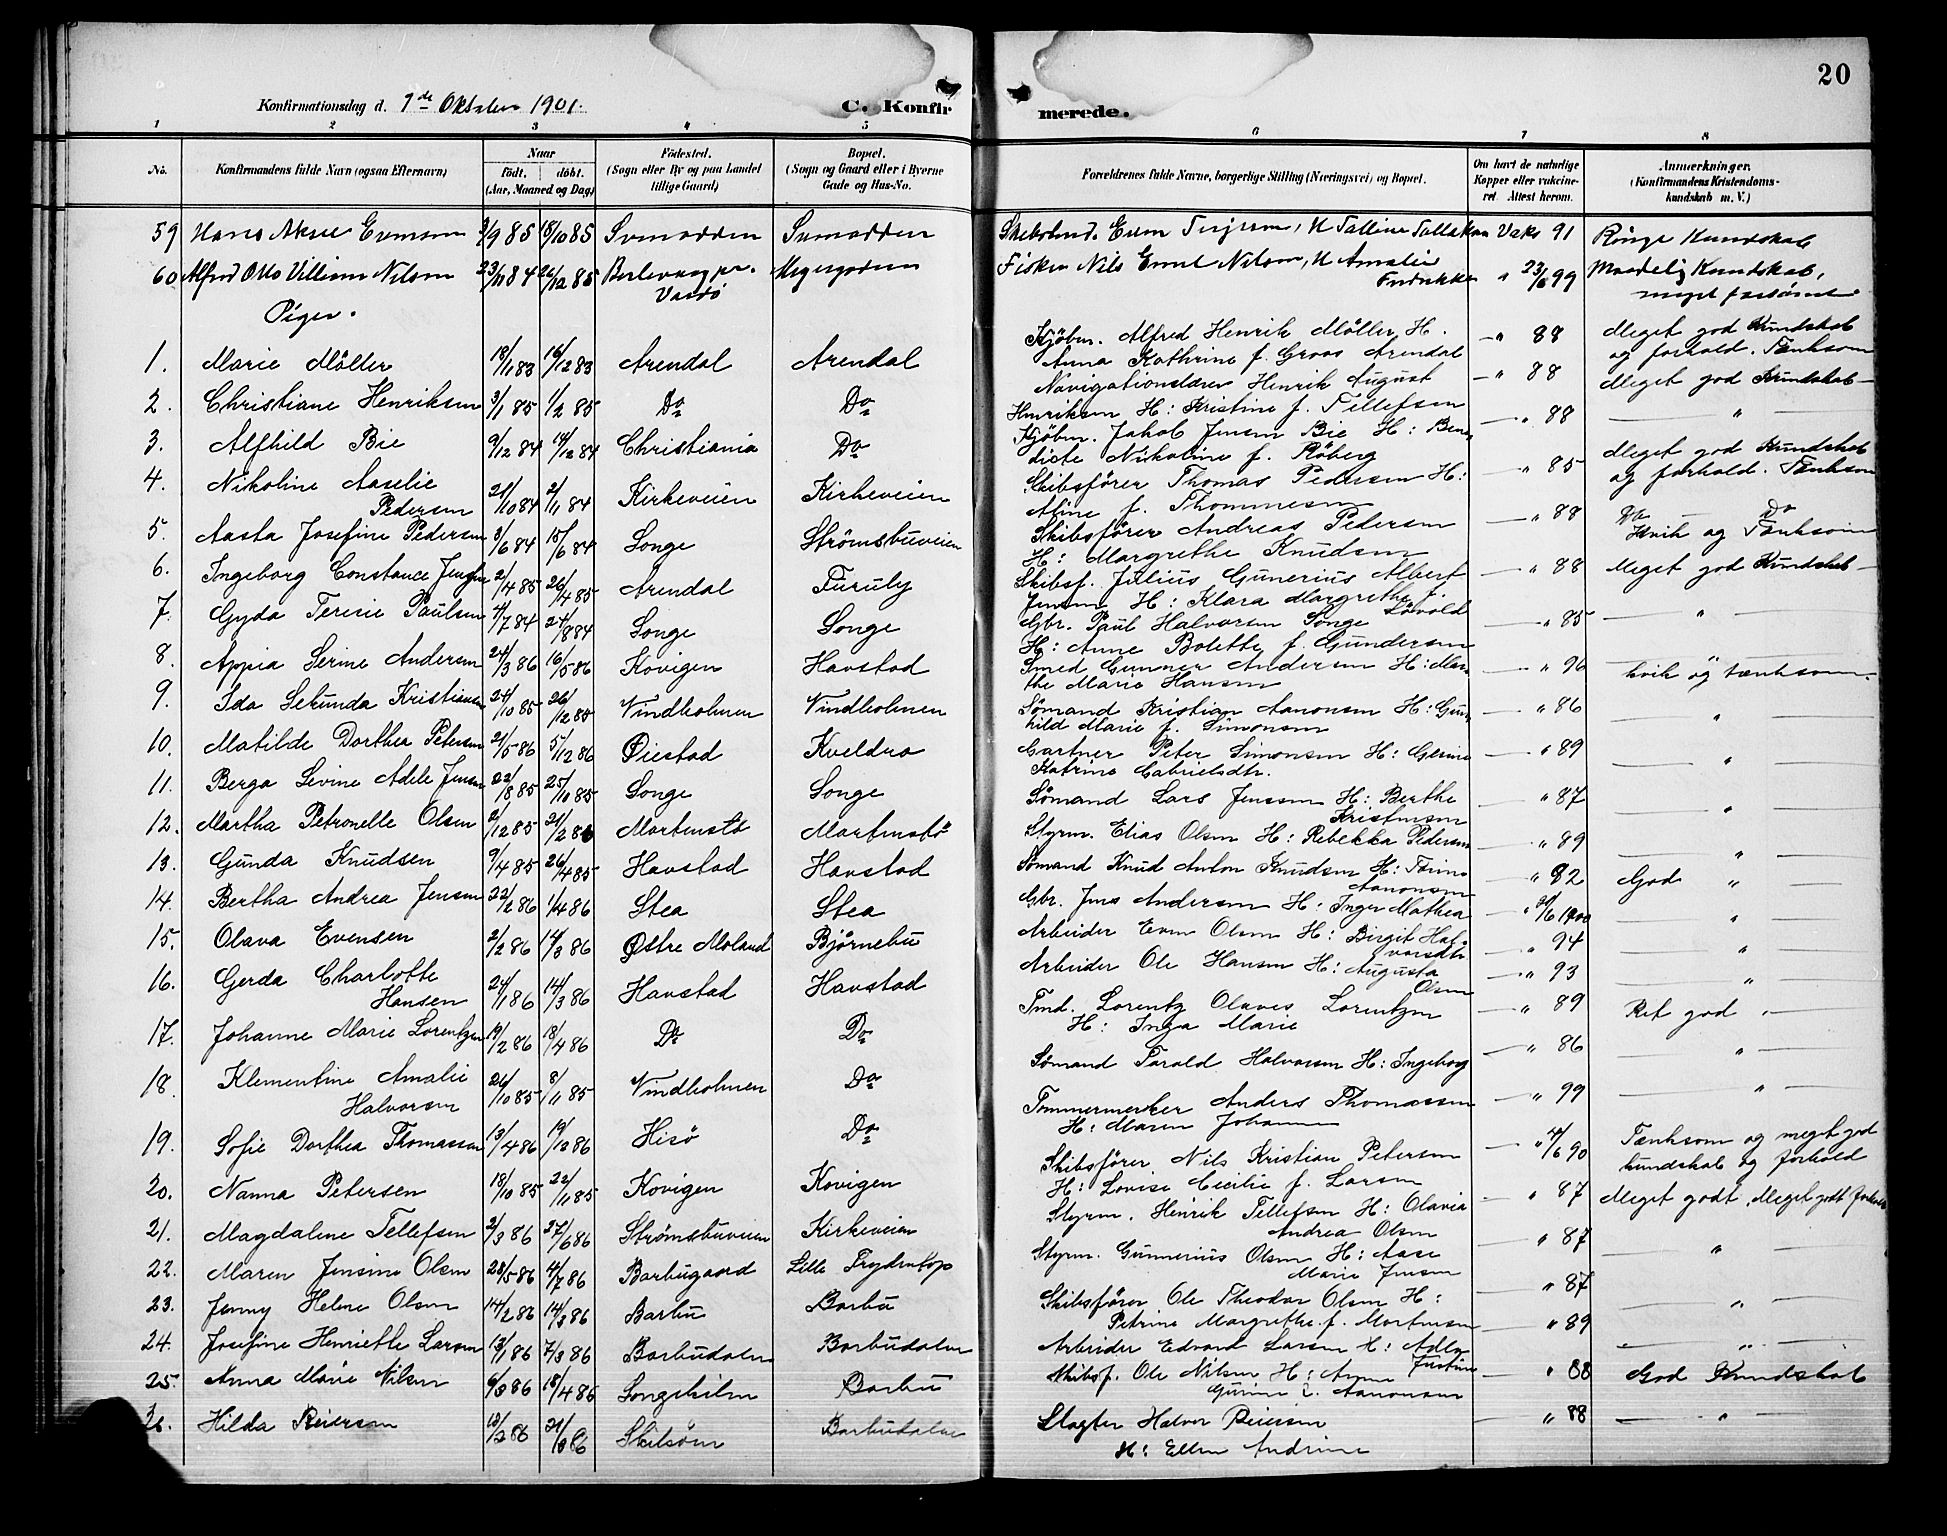 20
Konfirmationsdag d. 7de Oktober 1901.
C. Konfirmerede.
1 2 3 4 5 6 7 8
No.
Konfirmandens fulde Navn (ogsaa Efternavn)
Naar
født. døbt.
(Aar, Maaned og Dag)
Fødested.
(Sogn eller By og paa Landet
tillige Gaard)
Bopæl.
(Sogn og Gaard eller i Byerne
Gade og Hus-No.
Forældrenes fulde Navne, borgerlige Stilling (Næringsvei) og Bopæl.
Om havt de naturlige
Kopper eller vakcine-
ret. Attest herom.
Anmærkninger.
(Konfirmandens Kristendoms-
kundskab m. V.)
59 Hans 3/9 85 18/10 85 Vaks 91 Kundskab
60 Alfred Otto Villiam Nilsen 23/11 84 26/12 85 Berlevaag pr. Fisker Nils Emil Nilsen, H Amalie " 23/6 99 Maadelig Kundskab,
Vardø Fredrikke meget
Piger.
1. Marie Möller 18/1 83 16/12 83 Arendal Arendal Kjøbm. Alfred Henrik Möller H. " 88 Meget god Kundskab
Anna Kathrine f. Groos Arendal og forhold. Tænksom
2. Christiane Henriksen 3/1 85 1/2 85 Do Do Navigationslærer Henrik August " 88 Meget god Kundskab
Henriksen H: Kristine f. Tellefsen
3. Alfhild Bie 9/12 84 14/12 84 Christiania Do Kjøbm. Jakob Jensen Bie H: Bene " 88 "
dicte Nikoline f. Röberg
4. Nikoline Aaselie 21/10 84 2/11 84 Kirkeveien Kirkeveien Skibsfører Thomas Pedersen H: " 85 Meget god Kundskab
Pedersen Aline f. Thommesen og forhold. Tænksom
5. Aasta Josefine Pedersen 3/6 84 15/6 84 Songe Strømsbuveien Skibsfører Andreas Pedersen " 88 Do Do
H: Margrethe Knudsen Kvik og Tænksom
6. Ingeborg Constance Jensen 2/4 85 26/4 85 Arendal Furuly Skibsf. Julius Gunerius Albert " 88 Meget god Kundskab
Jensen H: Klara Margrethe f. Løvold
7. Gyda Teresie Paulsen 4/7 84 24/8 84 Songe Songe Gbr. Paul Halvorsen Songe " 85 "
H: Anne Bolette f. Gundersen
8. Appia Serine Andersen 24/3 86 16/5 86 Kovigen Havstad Smed Gunner Andersen H: Mar " 90 kvik og tænksom.
the Marie Hansen
9. Ida Sekunda Kristiansen 24/10 85 26/12 85 Vindholmen Vindholmen Sømand Kristian Aanonsen H: Gun " 86 "
hild Marie f. Simonsen
10. Matilde Dorthea Petersen 21/5 86 5/12 86 Øiestad Kveldro Gartner Peter Simonsen H: Gerine " 89 "
Katrine Gabrielsdtr.
11. Berga Levine Adele Jensen 22/8 85 25/10 85 Songe Songe Sømand Lars Jenssen H: Berthe " 87 "
Kristensen
12. Martha Petronelle Olsen 2/12 85 21/2 86 Mortenstø Mortenstø Styrm. Elias Olsen H: Rebekka Pedersen " 89 "
13. Gunda Knudsen 9/4 85 26/4 85 Havstad Havstad Sømand Knud Anton Knudsen H: " 92 God "
Aanonsen
14. Bertha Andrea Jensen 22/2 86 1/4 86 Stea Stea Gbr. Jens Andersen H: Inger Mathea " 1900 "
15. Olava Evensen 2/2 86 14/3 86 Østre Moland Bjørnebu Arbeider Even Olsen H: Birgit Hal- " 94 "
vorsdtr
16. Gerda Charlotte 24/1 86 14/3 86 Havstad Havstad Arbeider Ole Hansen H: Augusta " 93 "
Hansen Olsen
17. Johanne Marie Lorentzen 19/2 86 18/4 86 Do Do Tmd. Lorentz Olaves Lorentzen " 89 Ret god
H: Inga Marie
18. Klementine Amalie 26/10 85 8/11 85 Vindholmen Do Sømand Tarald Halvorsen H: Ingeborg " 86 "
Halvorsen
19. Sofie Dorthea Thomassen 13/4 86 19/12 86 Hisø Do Tømmermerker Anders Thomassen " 99 "
H: Maren Johanne
20. Nanna Petersen 18/10 85 22/11 85 Kovigen Kovigen Skibsfører Nils Kristian Petersen " 4/6 90 Tænksom og meget god
H: Lovise Cecilie f. Larsen kundskab og forhold
21. Magdalene Tellefsen 2/3 86 27/6 86 Strømsbuveien Kirkeveien Styrm. Henrik Tellefsen H: Olavia " 87 Meget godt, Meget godt forhold
Andrea Olsen
22. Maren Jensine Olsen 28/5 86 4/7 86 Barbugaard Lille Frydentop Styrm. Gunnerius Olsen H: Aase " 87 "
Marie Jensen
23. Jenny Helene Olsen 14/2 86 14/3 86 Barbu Barbu Skibsfører Ole Theodor Olsen H: " 87 "
Petrine Margrethe f. Mortensen
24. Josefine Henriette Larsen 13/1 86 7/3 86 Barbudalen Barbudalen Arbeider Edvard Larsen H: " 89 "
25. Anna Marie Nilsen 6/3 86 18/4 86 Songekilen Barbu Skibsf. Ole Nilsen H: Anne " 88 God Kundskab
Aanonsen
26. Hilda Reiersen 21/3 86 Skilsøen Barbudalen Slagter Halvor Reiersen " 88 "
H: Ellen Andrine